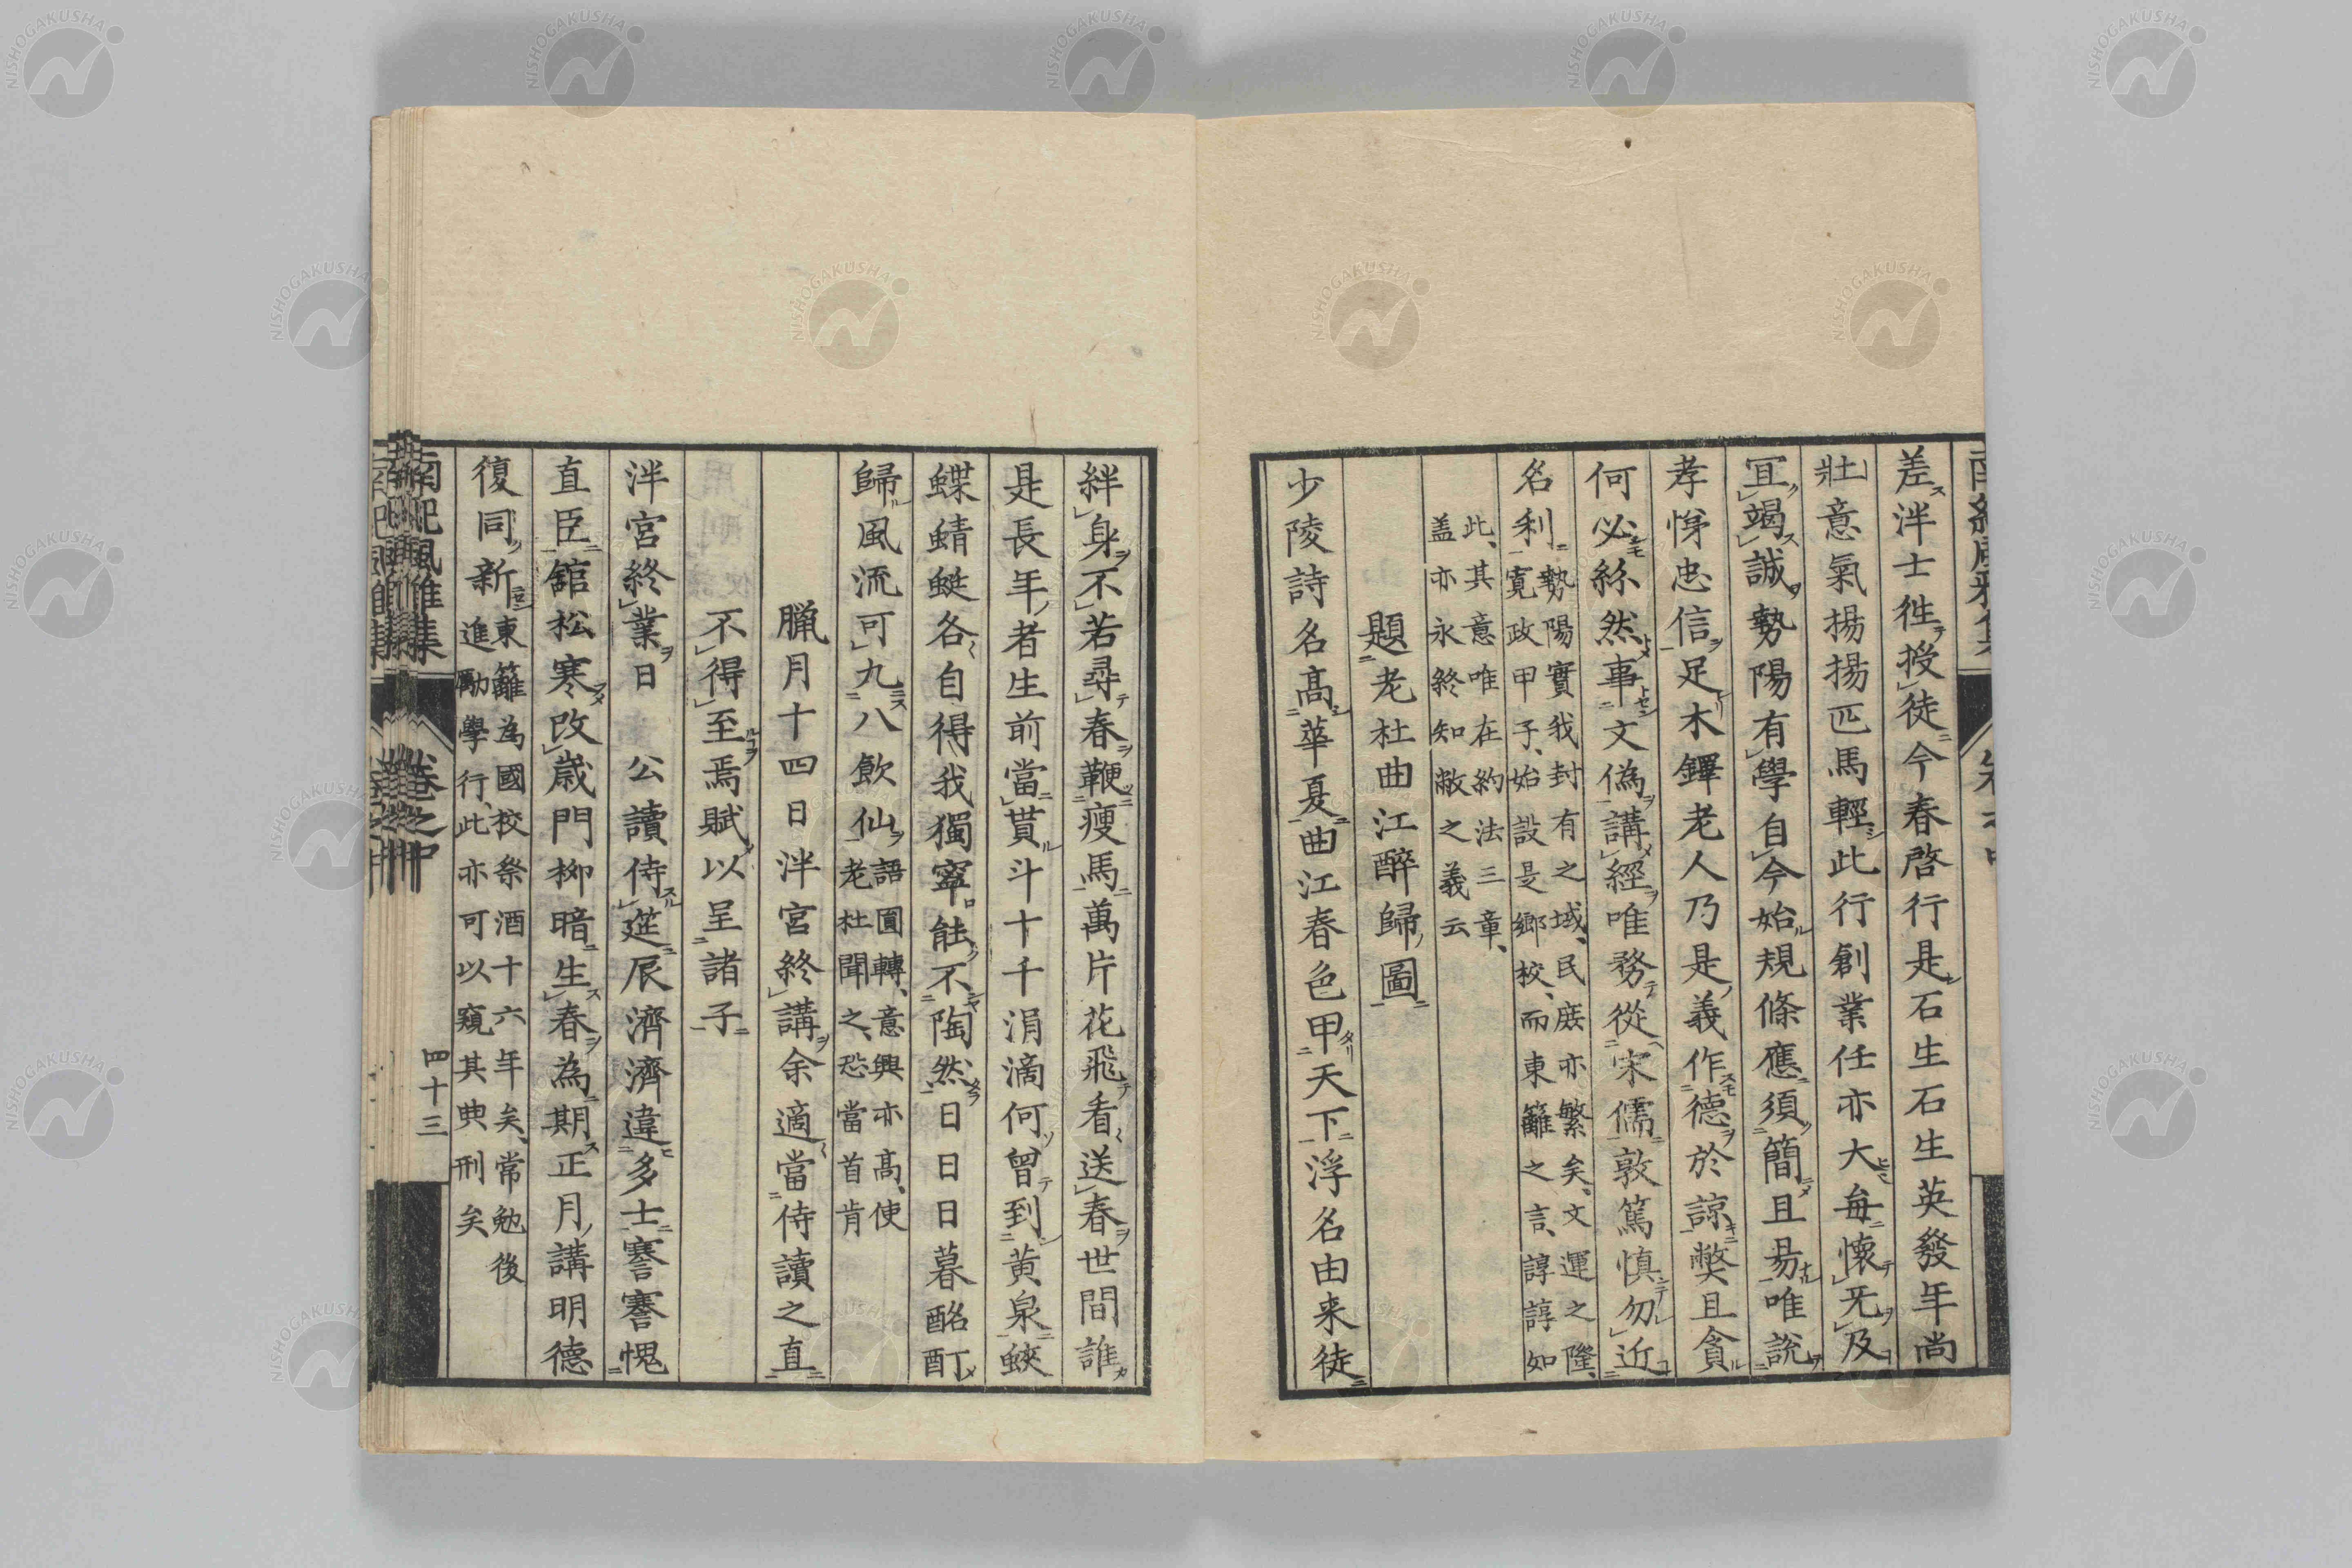 差泮士徃授徒今春啓行是石生石生英發年尚
壯意氣揚揚匹馬輕此行創業任亦大每懷无及
冝竭誠勢陽有學自今始規條應須簡且昜唯說
孝悌忠信足木鐸老人乃是義作德於諒弊且貪
何必絲然事文偽講經唯務從宋儒敦篤慎勿近
名利勢陽實我封有之域、民庶亦繁矣、文運之隆、
寛政甲子、始設是鄉校、而東籬之言、諄諄如
此、其意唯在約法三章、
盖亦永終知敝之義云
題老杜曲江醉歸圖
少陵詩名高華夏曲江春色甲天下浮名由来徒
絆身不若尋春鞭瘦馬萬片花飛看送春世間誰
是長年者生前當貰斗十千涓滴何曾到黃泉蛺
蝶蜻蜓各自得我獨寧能不陶然日日日暮酩酊
歸風流可九八飲仙語圓轉、意興亦高、使
老杜聞之、恐當首肯
臘月十四日泮宮終講余適當侍讀之直
不得至焉賦以呈諸子
泮宮終業日 公讀侍筵辰濟濟違多士謇謇愧
直臣舘松寒改歲門柳暗生春為期正月講明德
復同新東籬為國校祭酒十六年矣、常勉後
進勵學行、此亦可以窺其典刑矣
南紀風雅集 卷之中 四十三